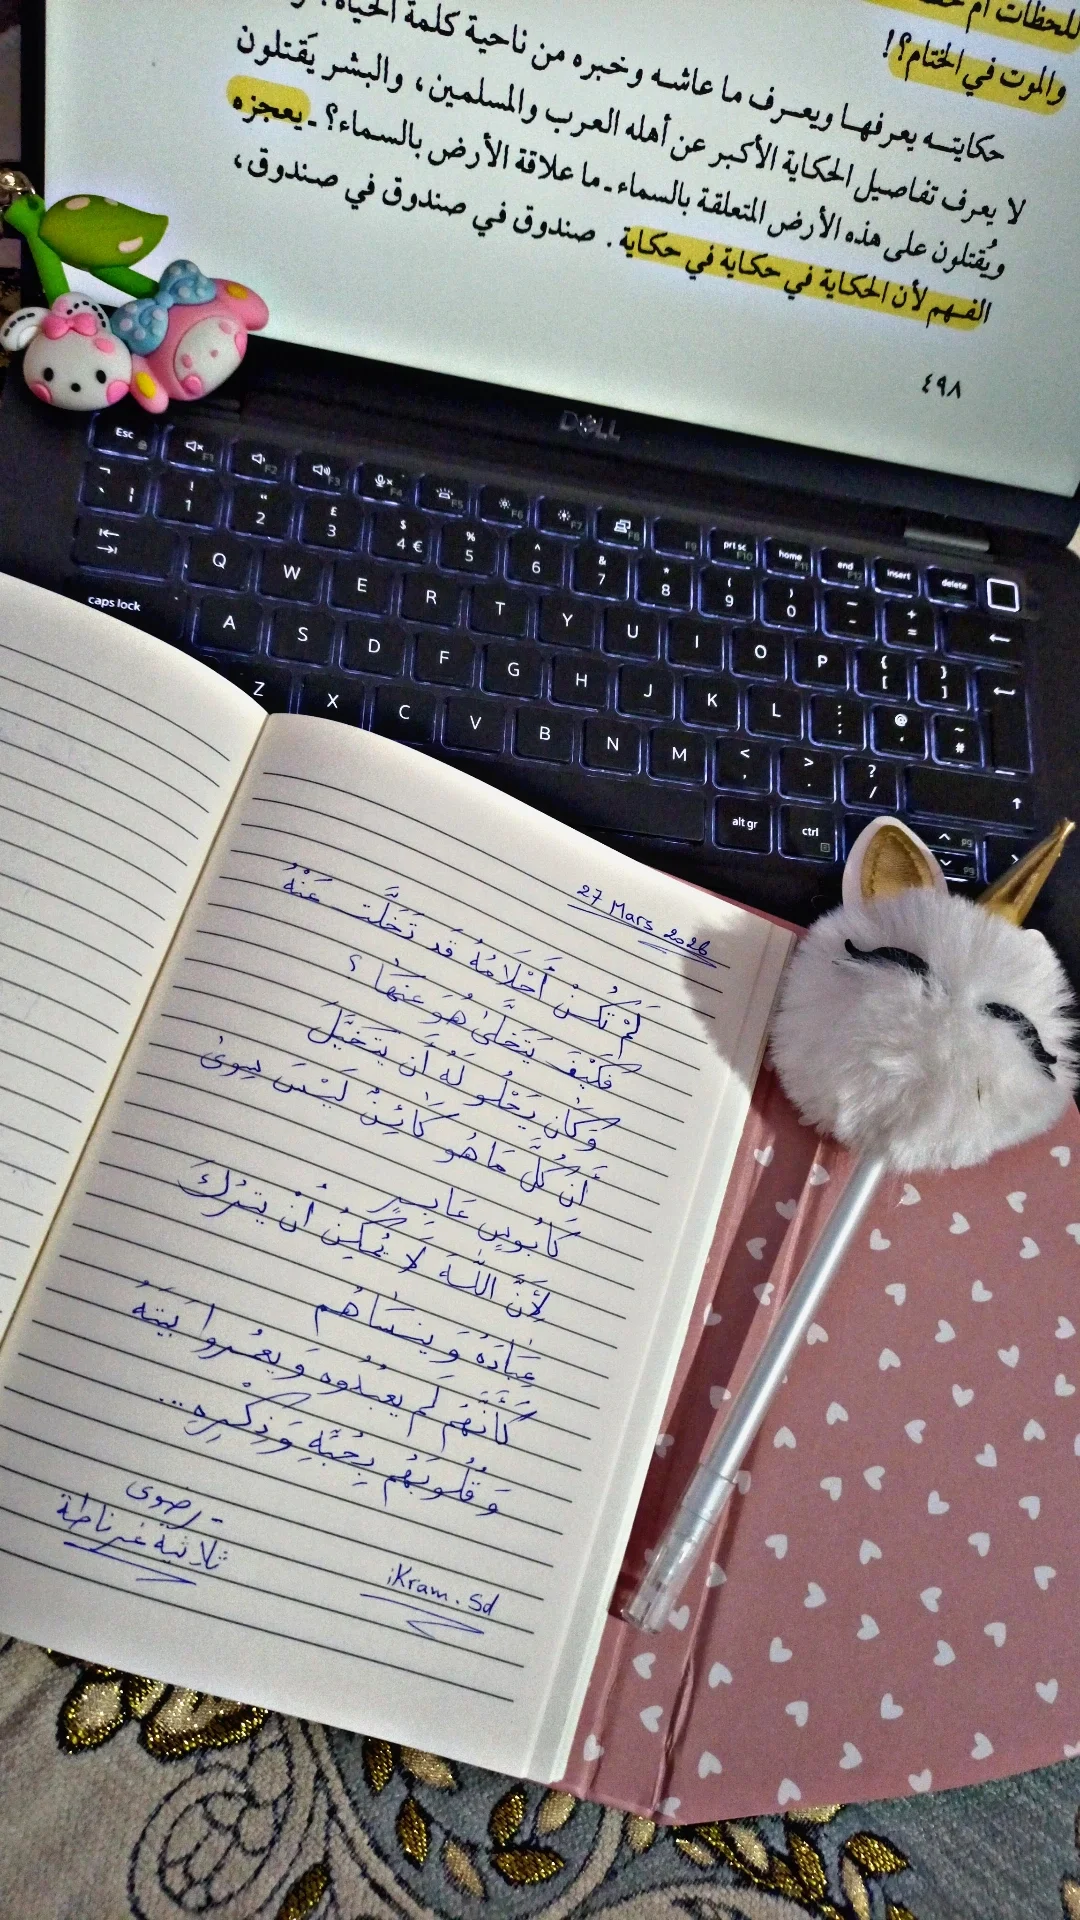 للحظات أم
والموت في الختام؟!
حكايته يعرفها ويعرف ما عاشه وخبره من ناحية كلمة الحياة
لا يعرف تفاصيل الحكاية الأكبر عن أهله العرب والمسلمين، والبشر يَقتلون
ويُقتلون على هذه الأرض المتعلقة بالسماء ـ ما علاقة الأرض بالسماء؟ ـ يعجزه
الفهم لأن الحكاية في حكاية في حكاية . صندوق في صندوق في صندوق،
٤٩٨
DELL
Esc F1 F2 F3 F4 F5 F6 F7 F8 F9 prt sc F10 home F11 end F12 insert delete
¬ ` ¦ ! 1 " 2 £ 3 $ 4 € % 5 ^ 6 & 7 * 8 ( 9 ) 0 _ - + =
Q W E R T Y U I O P { [ } ]
caps lock A S D F G H J K L : ; @ ' ~ #
Z X C V B N M < , > . ? /
alt gr ctrl pg pg
27 Mars 2026
لَمْ تَكُنْ أَحْلَامُهُ قَد تَخَلَّت عَنْهُ
فَكَيْفَ يَتَخَلَّىٰ هُوَ عَنهَا؟
وَكَانَ يَحْلُو لَهُ أَن يَتَخَيَّلَ
أَنَّ كُلَّ مَا هُو كَائِنٌ لَيْسَ سِوىٰ
كَابُوسٍ عَابِرٍ
لِأَنَّ اللَّهَ لَا يُمْكِنُ أَنْ يَتْرُكَ
عِبَادَهُ وَيَنسَاهُم
كَأَنَّهُم لَم يَعبُدُوه وَيعمُروا بَيتهُ
وَقُلُوبَهُم بِحُبِّهِ وَذِكْرِهِ...
- رضوى
ثلاثية غرناطة
iKram.Sd